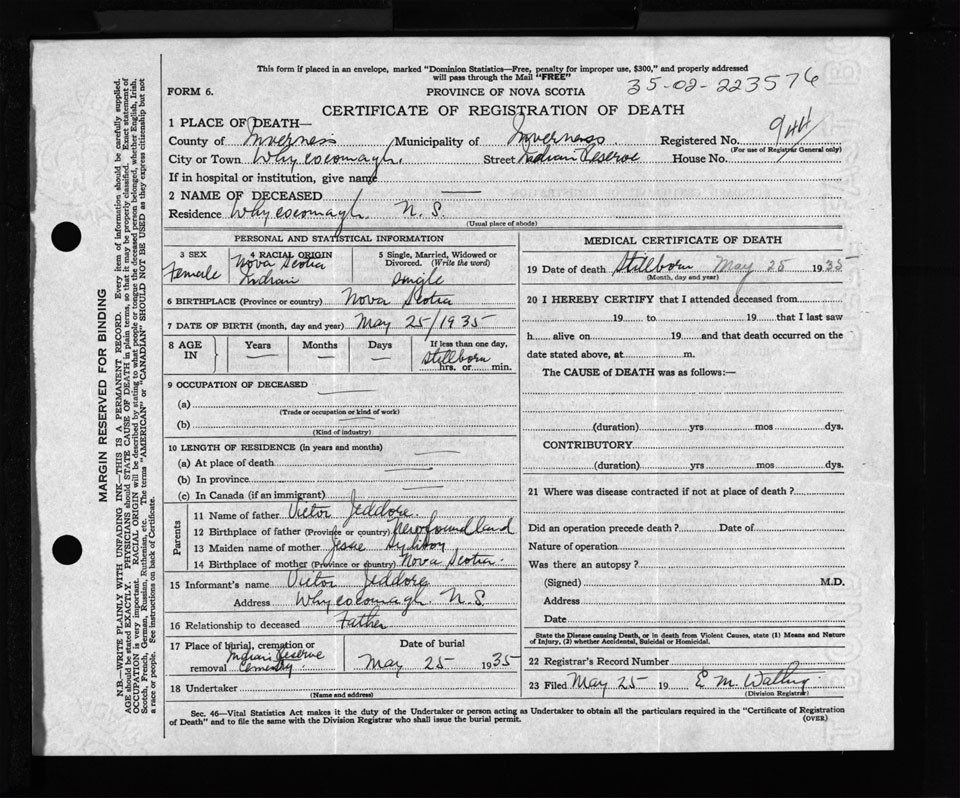 This form if placed in an envelope, marked "Dominion Statistics—Free, penalty for improper use, $300," and properly addressed
will pass through the Mail "FREE"
35-02-223576
FORM 6.
PROVINCE OF NOVA SCOTIA
CERTIFICATE OF REGISTRATION OF DEATH
1 PLACE OF DEATH—
County of Inverness Municipality of Inverness Registered No. 944
(For use of Registrar General only)
City or Town Whycocomagh. Street Indian Reserve House No.
If in hospital or institution, give name
2 NAME OF DECEASED
Residence Whycocomagh. N. S.
(Usual place of abode)
PERSONAL AND STATISTICAL INFORMATION
3 SEX
Female
4 RACIAL ORIGIN
Nova Scotia
Indian
5 Single, Married, Widowed or
Divorced. (Write the word)
Single
6 BIRTHPLACE (Province or country) Nova Scotia
7 DATE OF BIRTH (month, day and year) May 25/1935
8 AGE
IN
Years
Months
Days
If less than one day,
Stillborn
hrs. or min.
9 OCCUPATION OF DECEASED
(a)
(Trade or occupation or kind of work)
(b)
(Kind of industry)
10 LENGTH OF RESIDENCE (in years and months)
(a) At place of death
(b) In province
(c) In Canada (if an immigrant)
Parents
11 Name of father Victor Jeddore.
12 Birthplace of father (Province or country) Newfoundland
13 Maiden name of mother
14 Birthplace of mother (Province or country) Nova Scotia.
15 Informant's name Victor Jeddore
Address Whycocomagh N.S.
16 Relationship to deceased Father
17 Place of burial, cremation or
removal Indian Reserve
Cemetry
Date of burial
May 25 1935
18 Undertaker
(Name and address)
MEDICAL CERTIFICATE OF DEATH
19 Date of death Stillborn May 25 1935
(Month, day and year)
20 I HEREBY CERTIFY that I attended deceased from
19 to 19 that I last saw
h alive on 19 and that death occurred on the
date stated above, at m.
The CAUSE of DEATH was as follows:—
(duration) yrs mos dys.
CONTRIBUTORY
(duration) yrs mos dys.
21 Where was disease contracted if not at place of death?
Did an operation precede death? Date of
Nature of operation
Was there an autopsy?
(Signed) M.D.
Address
Date
State the Disease causing Death, or in death from Violent Causes, state (1) Means and Nature
of Injury, (2) whether Accidental, Suicidal or Homicidal.
22 Registrar's Record Number
23 Filed May 25 19 E M
(Division Registrar)
Sec. 46—Vital Statistics Act makes it the duty of the Undertaker or person acting as Undertaker to obtain all the particulars required in the "Certificate of Registration
of Death" and to file the same with the Division Registrar who shall issue the burial permit.
(OVER)
MARGIN RESERVED FOR BINDING
N.B.—WRITE PLAINLY WITH UNFADING INK—THIS IS A PERMANENT RECORD. Every item of information should be carefully supplied.
AGE should be stated EXACTLY. PHYSICIANS should STATE CAUSE OF DEATH in plain terms, so that it may be properly classified. Exact statement of
OCCUPATION is very important. RACIAL ORIGIN will be described by stating to what people or tongue the deceased person belonged, whether English, Irish,
Scotch, French, German, Russian, Ruthenian, etc. The terms "AMERICAN" or "CANADIAN" SHOULD NOT BE USED as they express citizenship but not
a race or people. See instructions on back of Certificate.